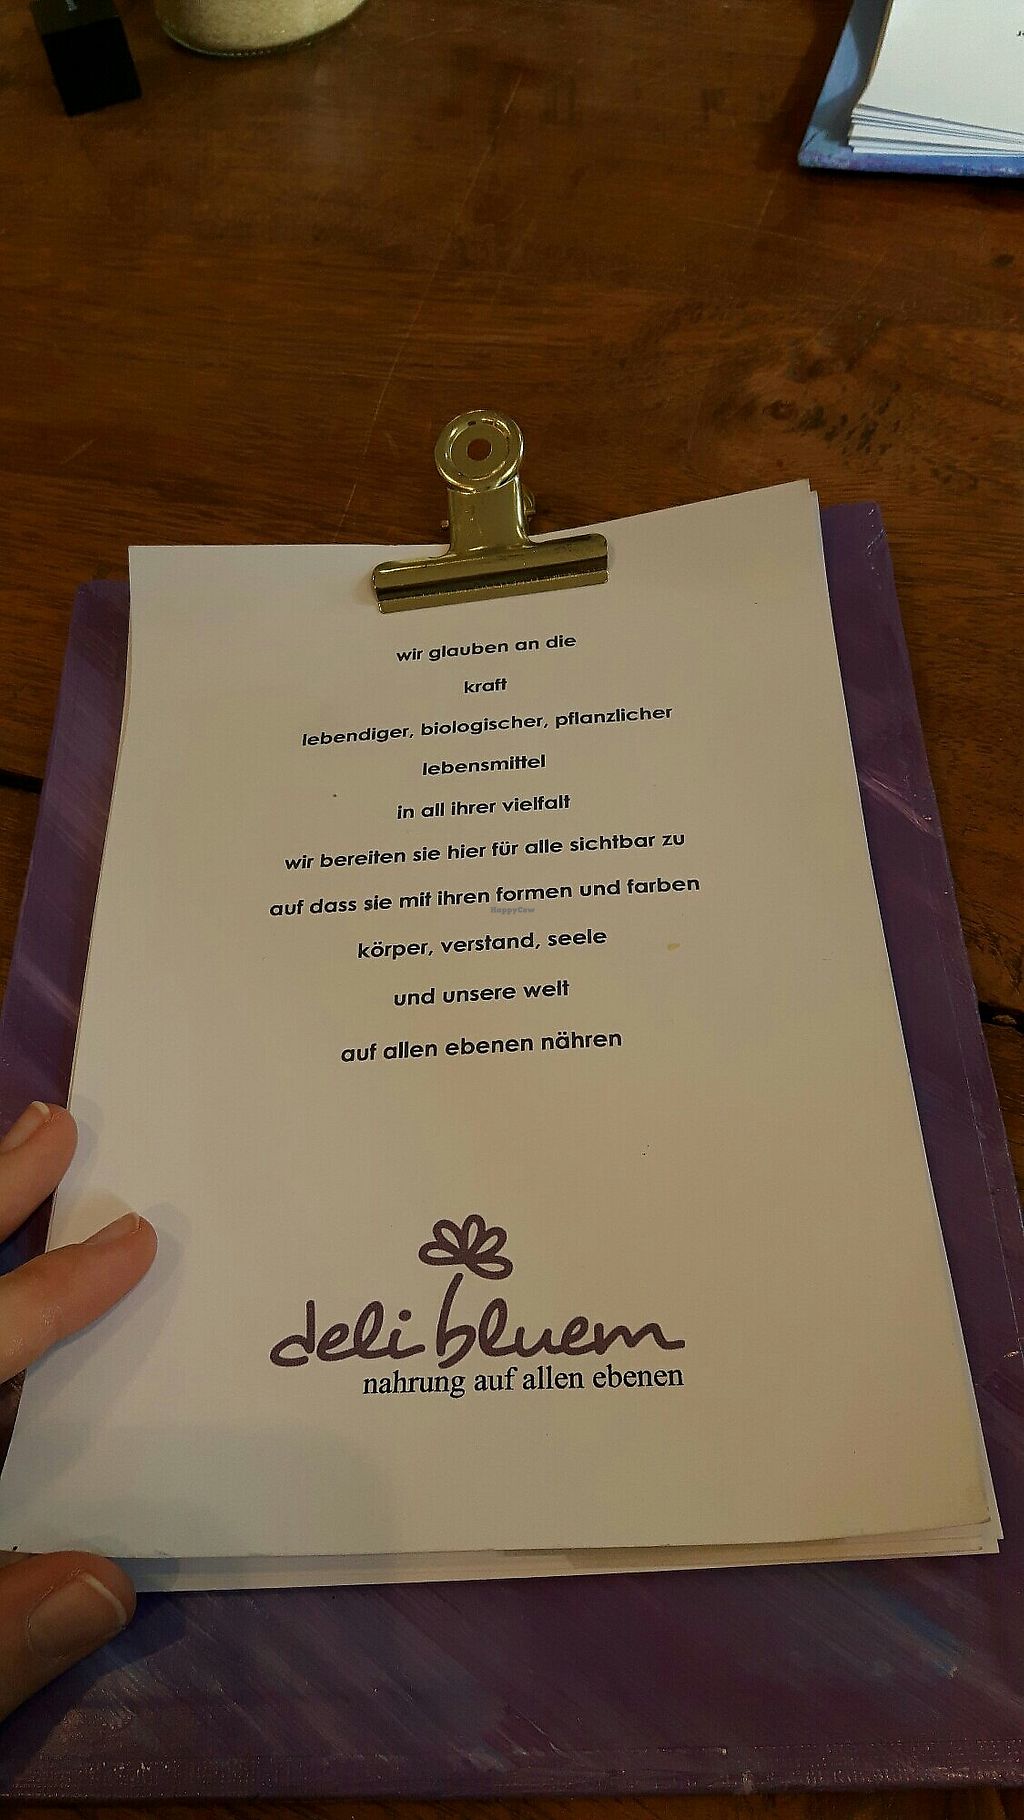 wir glauben an die
kraft
lebendiger, biologischer, pflanzlicher
lebensmittel
in all ihrer vielfalt
wir bereiten sie hier für alle sichtbar zu
auf dass sie mit ihren formen und farben
HappyCow
körper, verstand, seele
und unsere welt
auf allen ebenen nähren
deli bluem
nahrung auf allen ebenen